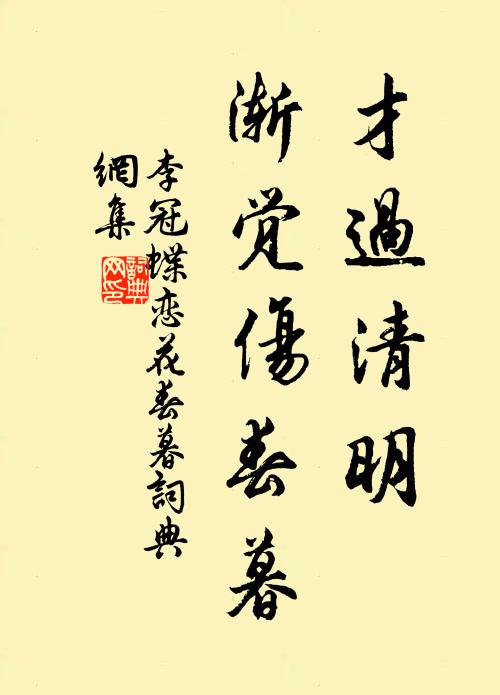 才過清明
漸覺傷春暮
李冠蝶恋花春暮詞典
網集
詞典
网印